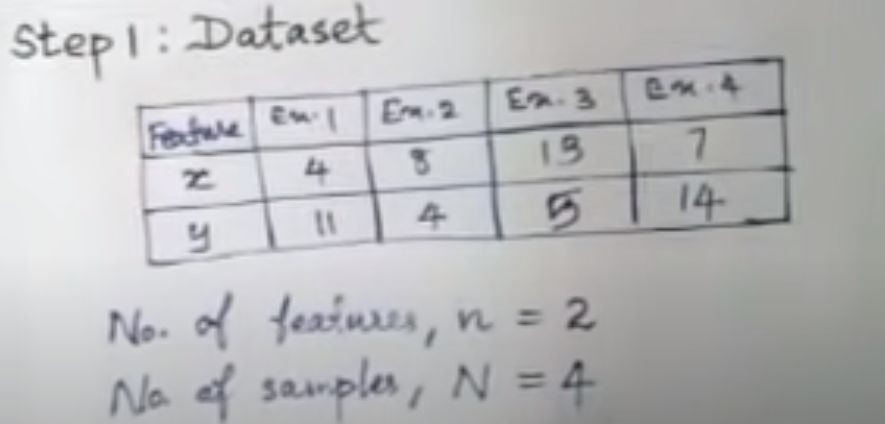 Step 1 : Dataset
Feature Ex.1 Ex.2 Ex.3 Ex.4
x 4 8 13 7
y 11 4 5 14
No. of features, n = 2
No. of samples, N = 4